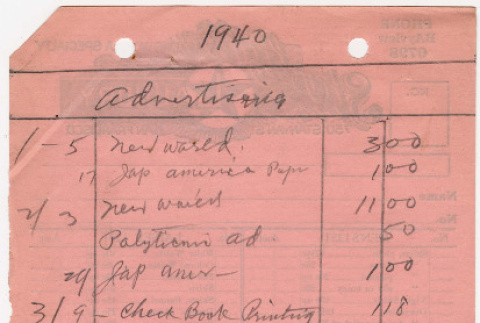 1940
Advertising
1-5 New world. 3 00
17 Jap america Papr 1 00
2/3 New world 11 00
Polyticion ad 50
29 Jap amer- 1 00
3/9- Check Book Printing 1 18